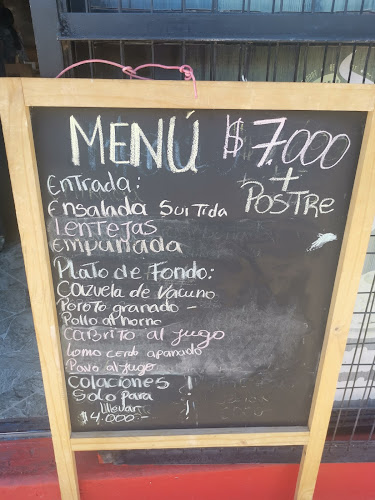 MENÚ $7.000
+
POSTRE
Entrada:
Ensalada SurTida
Lentejas
Empanada
Plato de Fondo:
Cazuela de Vacuno
Poroto granado -
Pollo al horno
Cabrito al jugo
Lomo cerdo apanado
Pavo al jugo
Colaciones !
Solo para
lllevar
$4.000.-